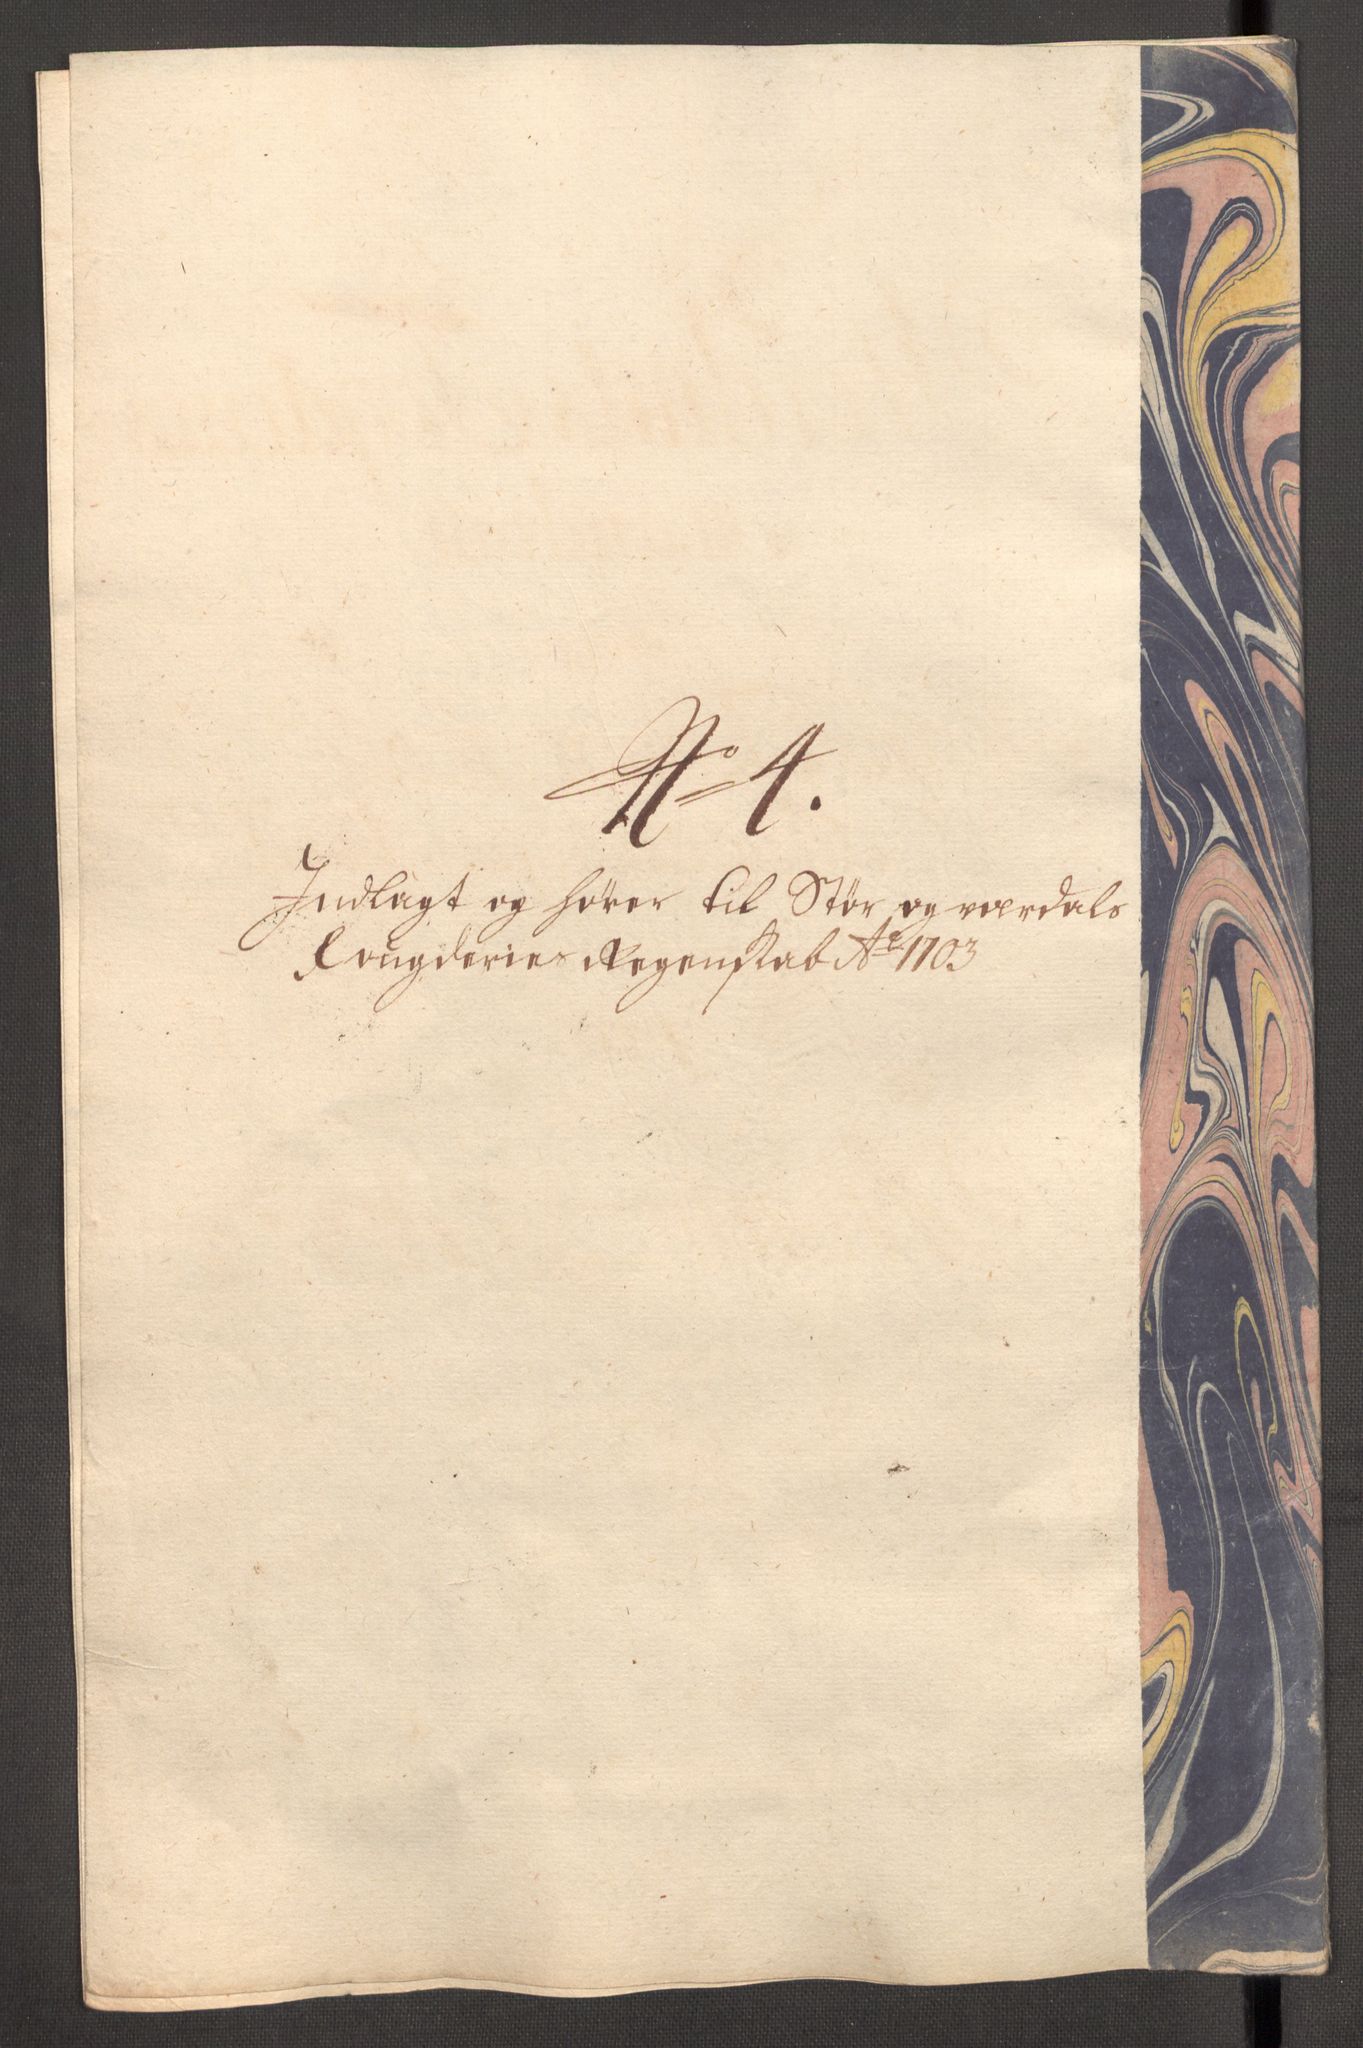 No 4.
Indlagt og hører til Stør og værdals
Fougderies Regenskab Ao 1703